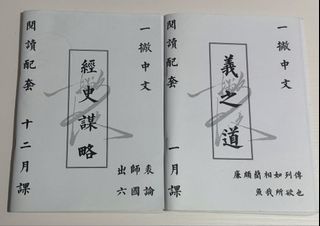 一撇中文
經史謀略
出師表
六國論
閱讀配套 十二月課
一撇中文
義之道
廉頗藺相如列傳
魚我所欲也
閱讀配套 一月課